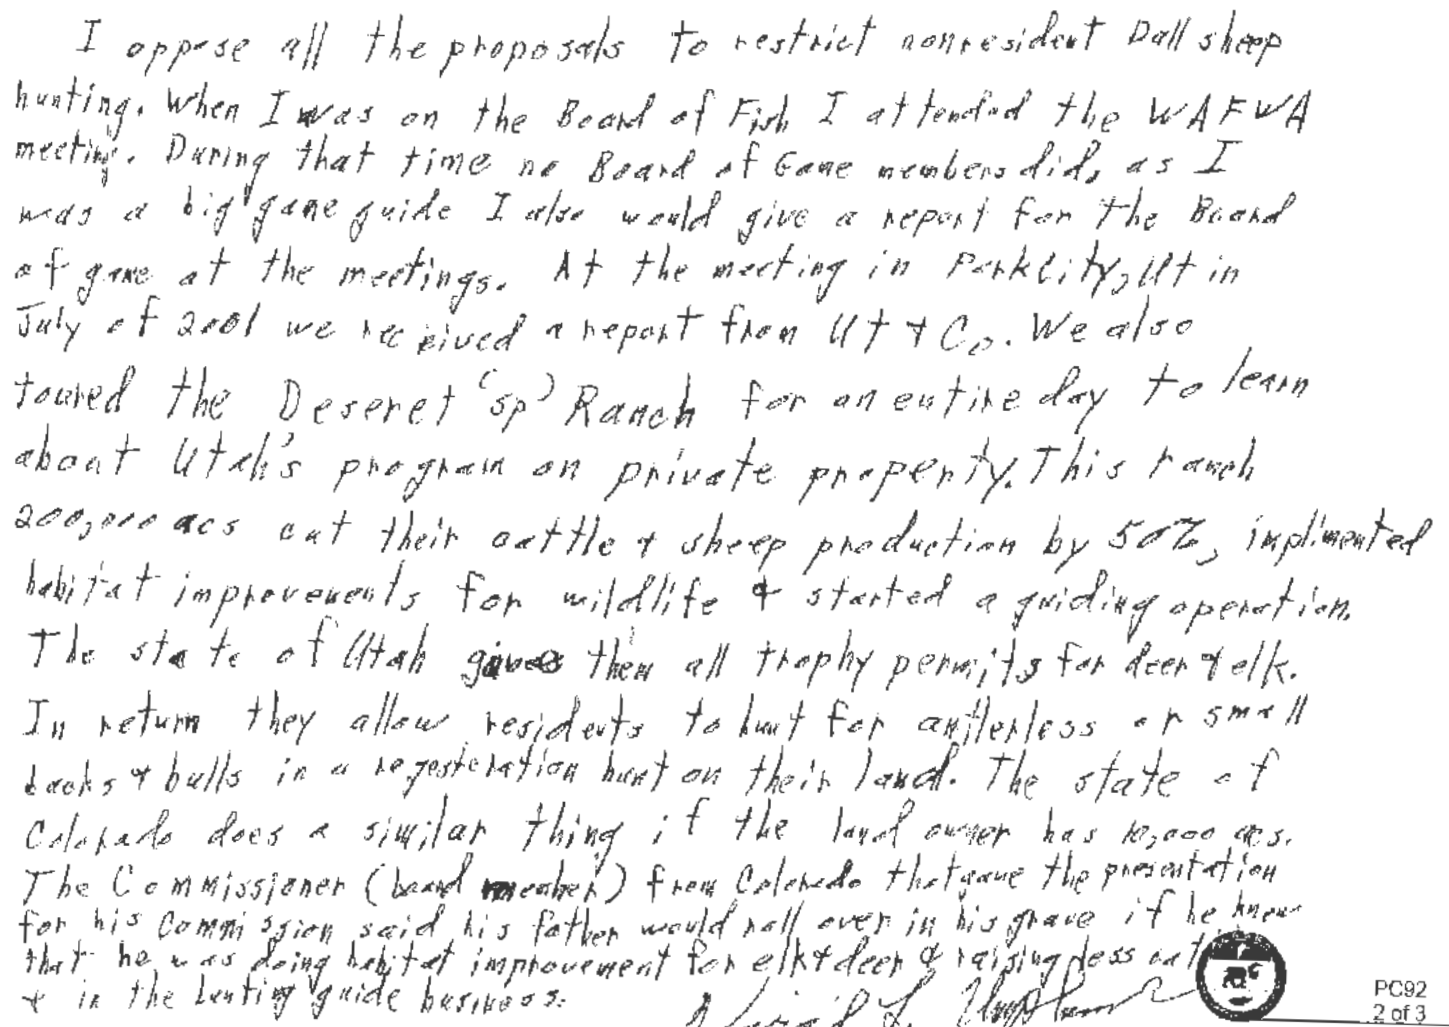 I oppose all the proposals to restrict nonresident Dall sheep
hunting. When I was on the Board of Fish I attended the WAFWA
meeting. During that time no Board of Game members did, as I
was a big game guide I also would give a report for the Board
of game at the meetings. At the meeting in Park City, Ut in
July of 2001 we received a report from Ut + Co. We also
toured the Deseret (sp) Ranch for an entire day to learn
about Utah's program on private property. This ranch
200,000 acs cut their cattle + sheep production by 50%, implimented
habitat improvements for wildlife + started a guiding operation.
The state of Utah gives them all trophy permits for deer + elk.
In return they allow residents to hunt for antlerless or small
bucks + bulls in a regesteration hunt on their land. The state of
Colorado does a similar thing if the land owner has 10,000 acs.
The Commissioner (board member) from Colorado that gave the presentation
for his Commission said his father would roll over in his grave if he knew
that he was doing habitat improvement for elk + deer & raising less cat
+ in the hunting guide business.
PC92
2 of 3